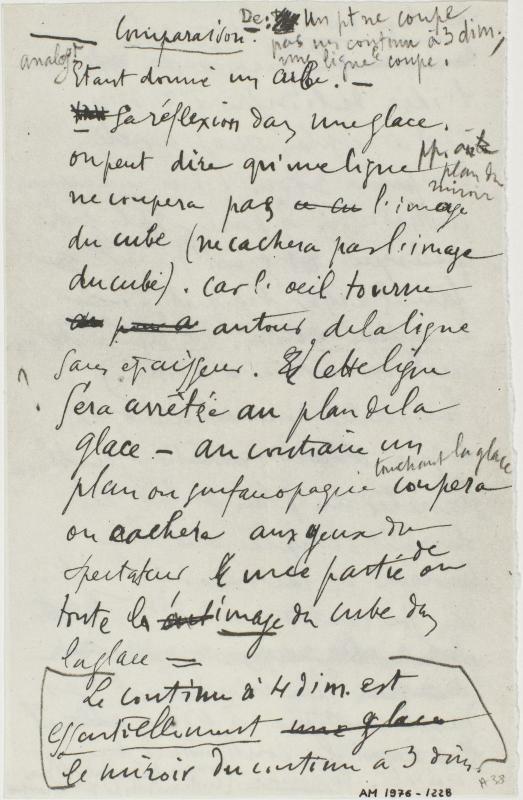 Comparaison. De: Un pt ne coupe
pas un continu à 3 dim.,
une ligne coupe.
analogt
Etant donné un cube. —
Sa réflexion dans une glace.
on peut dire qu'une ligne ppre au
plan du
miroir
ne coupera pas l'image
du cube (ne cachera pas l'image
du cube). car l'oeil tourne
autour de la ligne
sans epaisseur. Cette ligne
sera arrêtée au plan de la
glace — au contraire un
touchant la glace
plan ou surface opaque coupera
ou cachera aux yeux du
spectateur une partie de ou
toute l'image du cube dans
la glace =
Le continu à 4 dim. est
essentiellement une glace
le miroir du continu à 3 dim.
A 33
AM 1976-1228